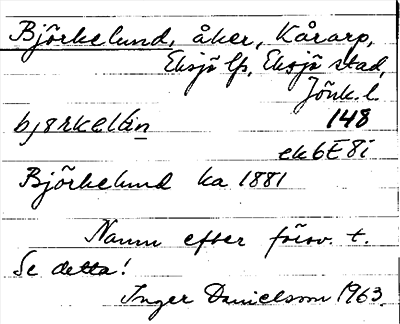 Björkelund, åker, Kårarp,
Eksjö lfs, Eksjö stad,
Jönk. l.
bjərkelùn 148
ek6E8i
Björkelund ka 1881
Namn efter försv. t.
Se detta!
Inger Danielsson 1963.